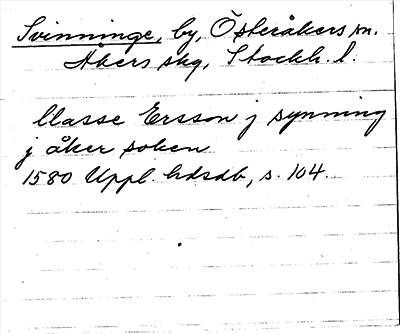 Svinninge, by, Österåkers sn.
Åkers skg, Stockh. l.
Classe Ersson j synning
j åker soken
1580 Uppl. hdsdb, s. 104.